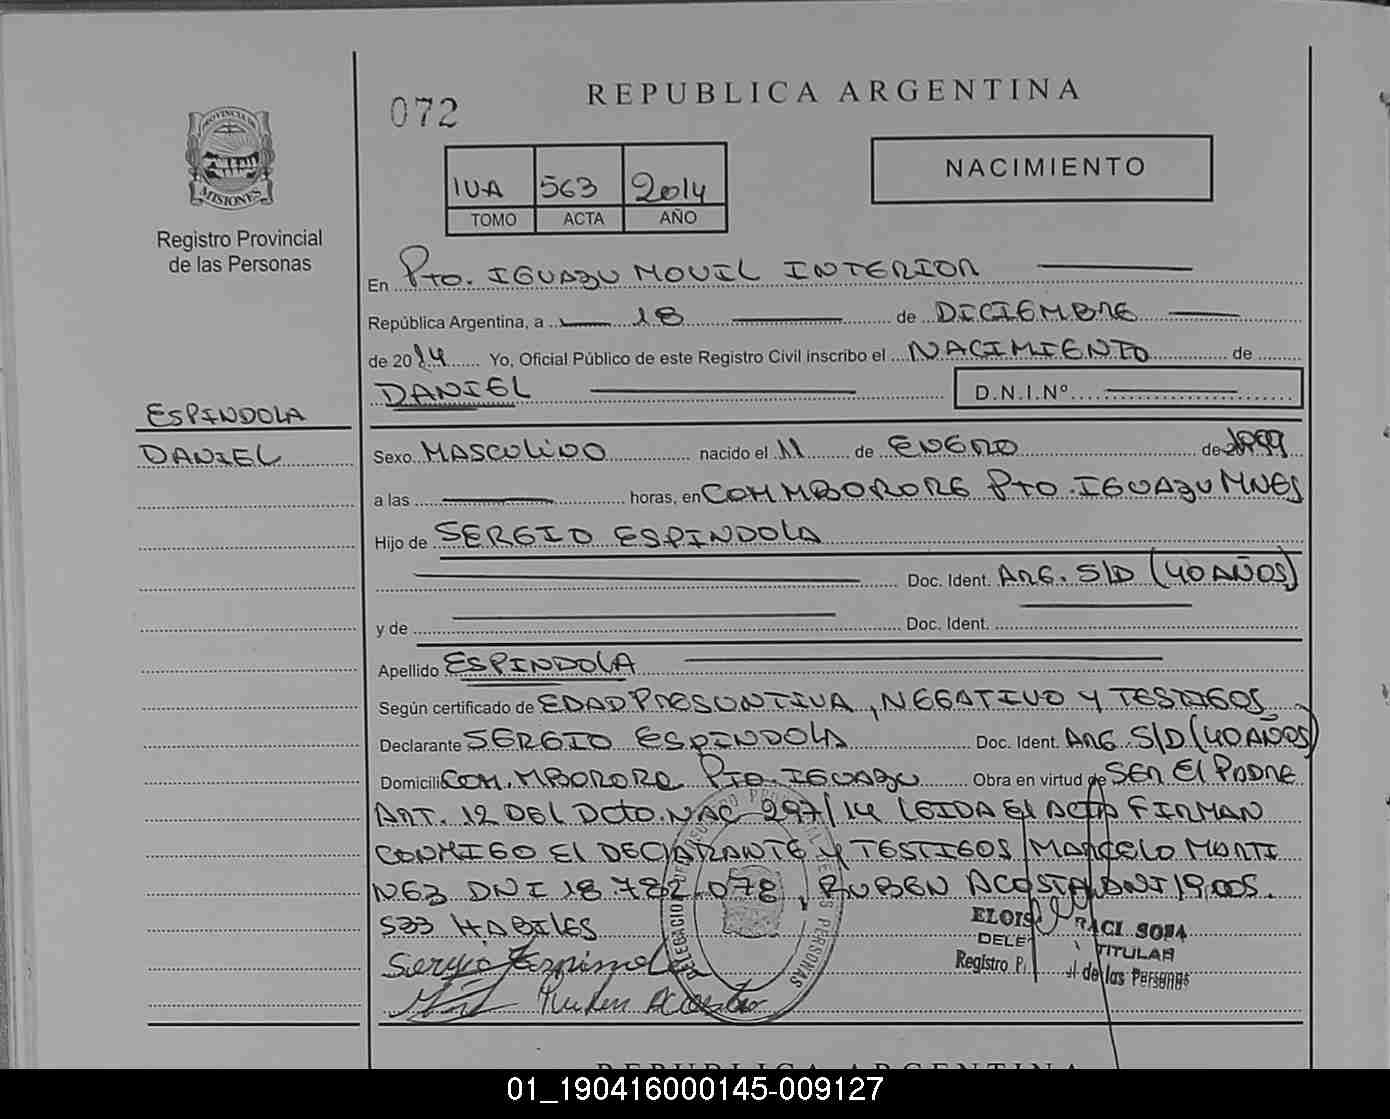 072
REPUBLICA ARGENTINA
PROVINCIA DE
MISIONES
Registro Provincial
de las Personas
IUA 563 2014
TOMO ACTA AÑO
NACIMIENTO
En Pto. IGUAZU MOVIL INTERIOR
República Argentina, a 18 de DICIEMBRE
de 2014 Yo, Oficial Público de este Registro Civil inscribo el NACIMIENTO de
DANIEL D.N.I.Nº
ESPINDOLA
DANIEL
Sexo MASCULINO nacido el 11 de ENERO de 1999
a las horas, en COM MBORORE PTO. IGUAZU MNES
Hijo de SERGIO ESPINDOLA
Doc. Ident. ARG. S/D (40 AÑOS)
y de Doc. Ident.
Apellido ESPINDOLA
Según certificado de EDAD PRESUNTIVA, NEGATIVO Y TESTIGOS
Declarante SERGIO ESPINDOLA Doc. Ident. ARG S/D (40 AÑOS)
Domicilio COM. MBORORE PTO. IGUAZU Obra en virtud de SER El PADRE
ART. 12 DEl DCTO. NAC 297/14 LEIDA El ACTA FIRMAN
CONMIGO El DECLARANTE Y TESTIGOS MARCELO MARTI
NEZ DNI 18.782.078, RUBEN ACOSTA DNI 19.005.
533 HABILES
Sergio Espindola
Ruben Acosta
DELEGACION
PERSONAS
TITULAR
Registro
de las Personas
REPUBLICA ARGENTINA
01_190416000145-009127